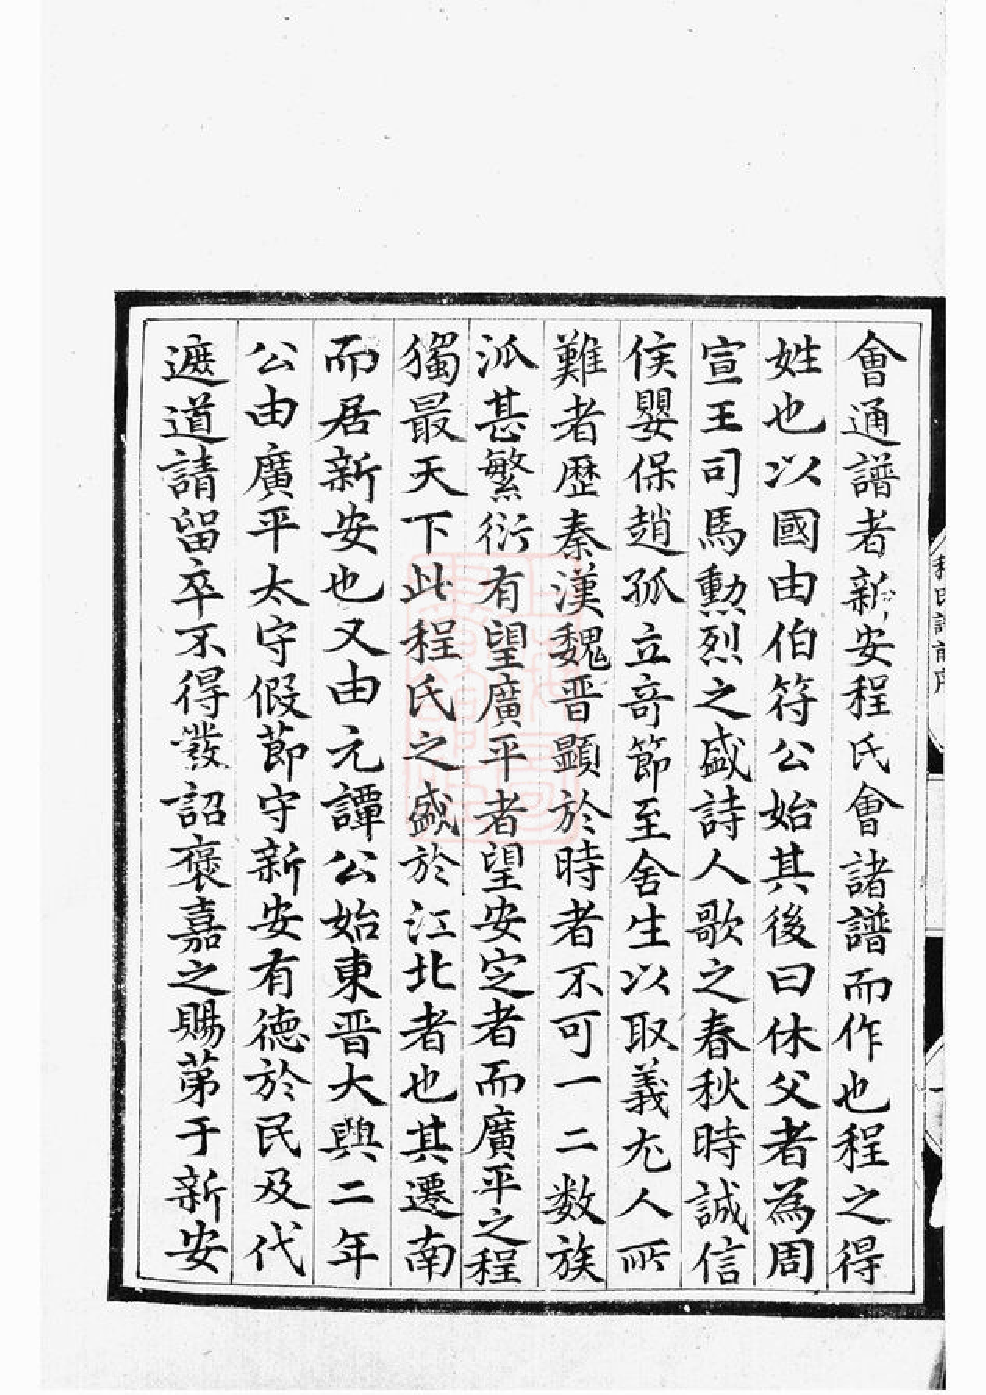 會通譜者新安程氏會諸譜而作也程之得
姓也以國由伯符公始其後曰休父者為周
宣王司馬勲烈之盛詩人歌之春秋時誠信
侯嬰保趙孤立竒節至舍生以取義尤人所
難者歴秦漢魏晋顯於時者不可一二数族
派甚繁衍有望廣平者望安定者而廣平之程
獨最天下此程氏之盛於江北者也其遷南
而居新安也又由元譚公始東晋大興二年
公由廣平太守假節守新安有德於民及代
遮道請留卒不得發詔褒嘉之賜苐于新安
程氏譜前序